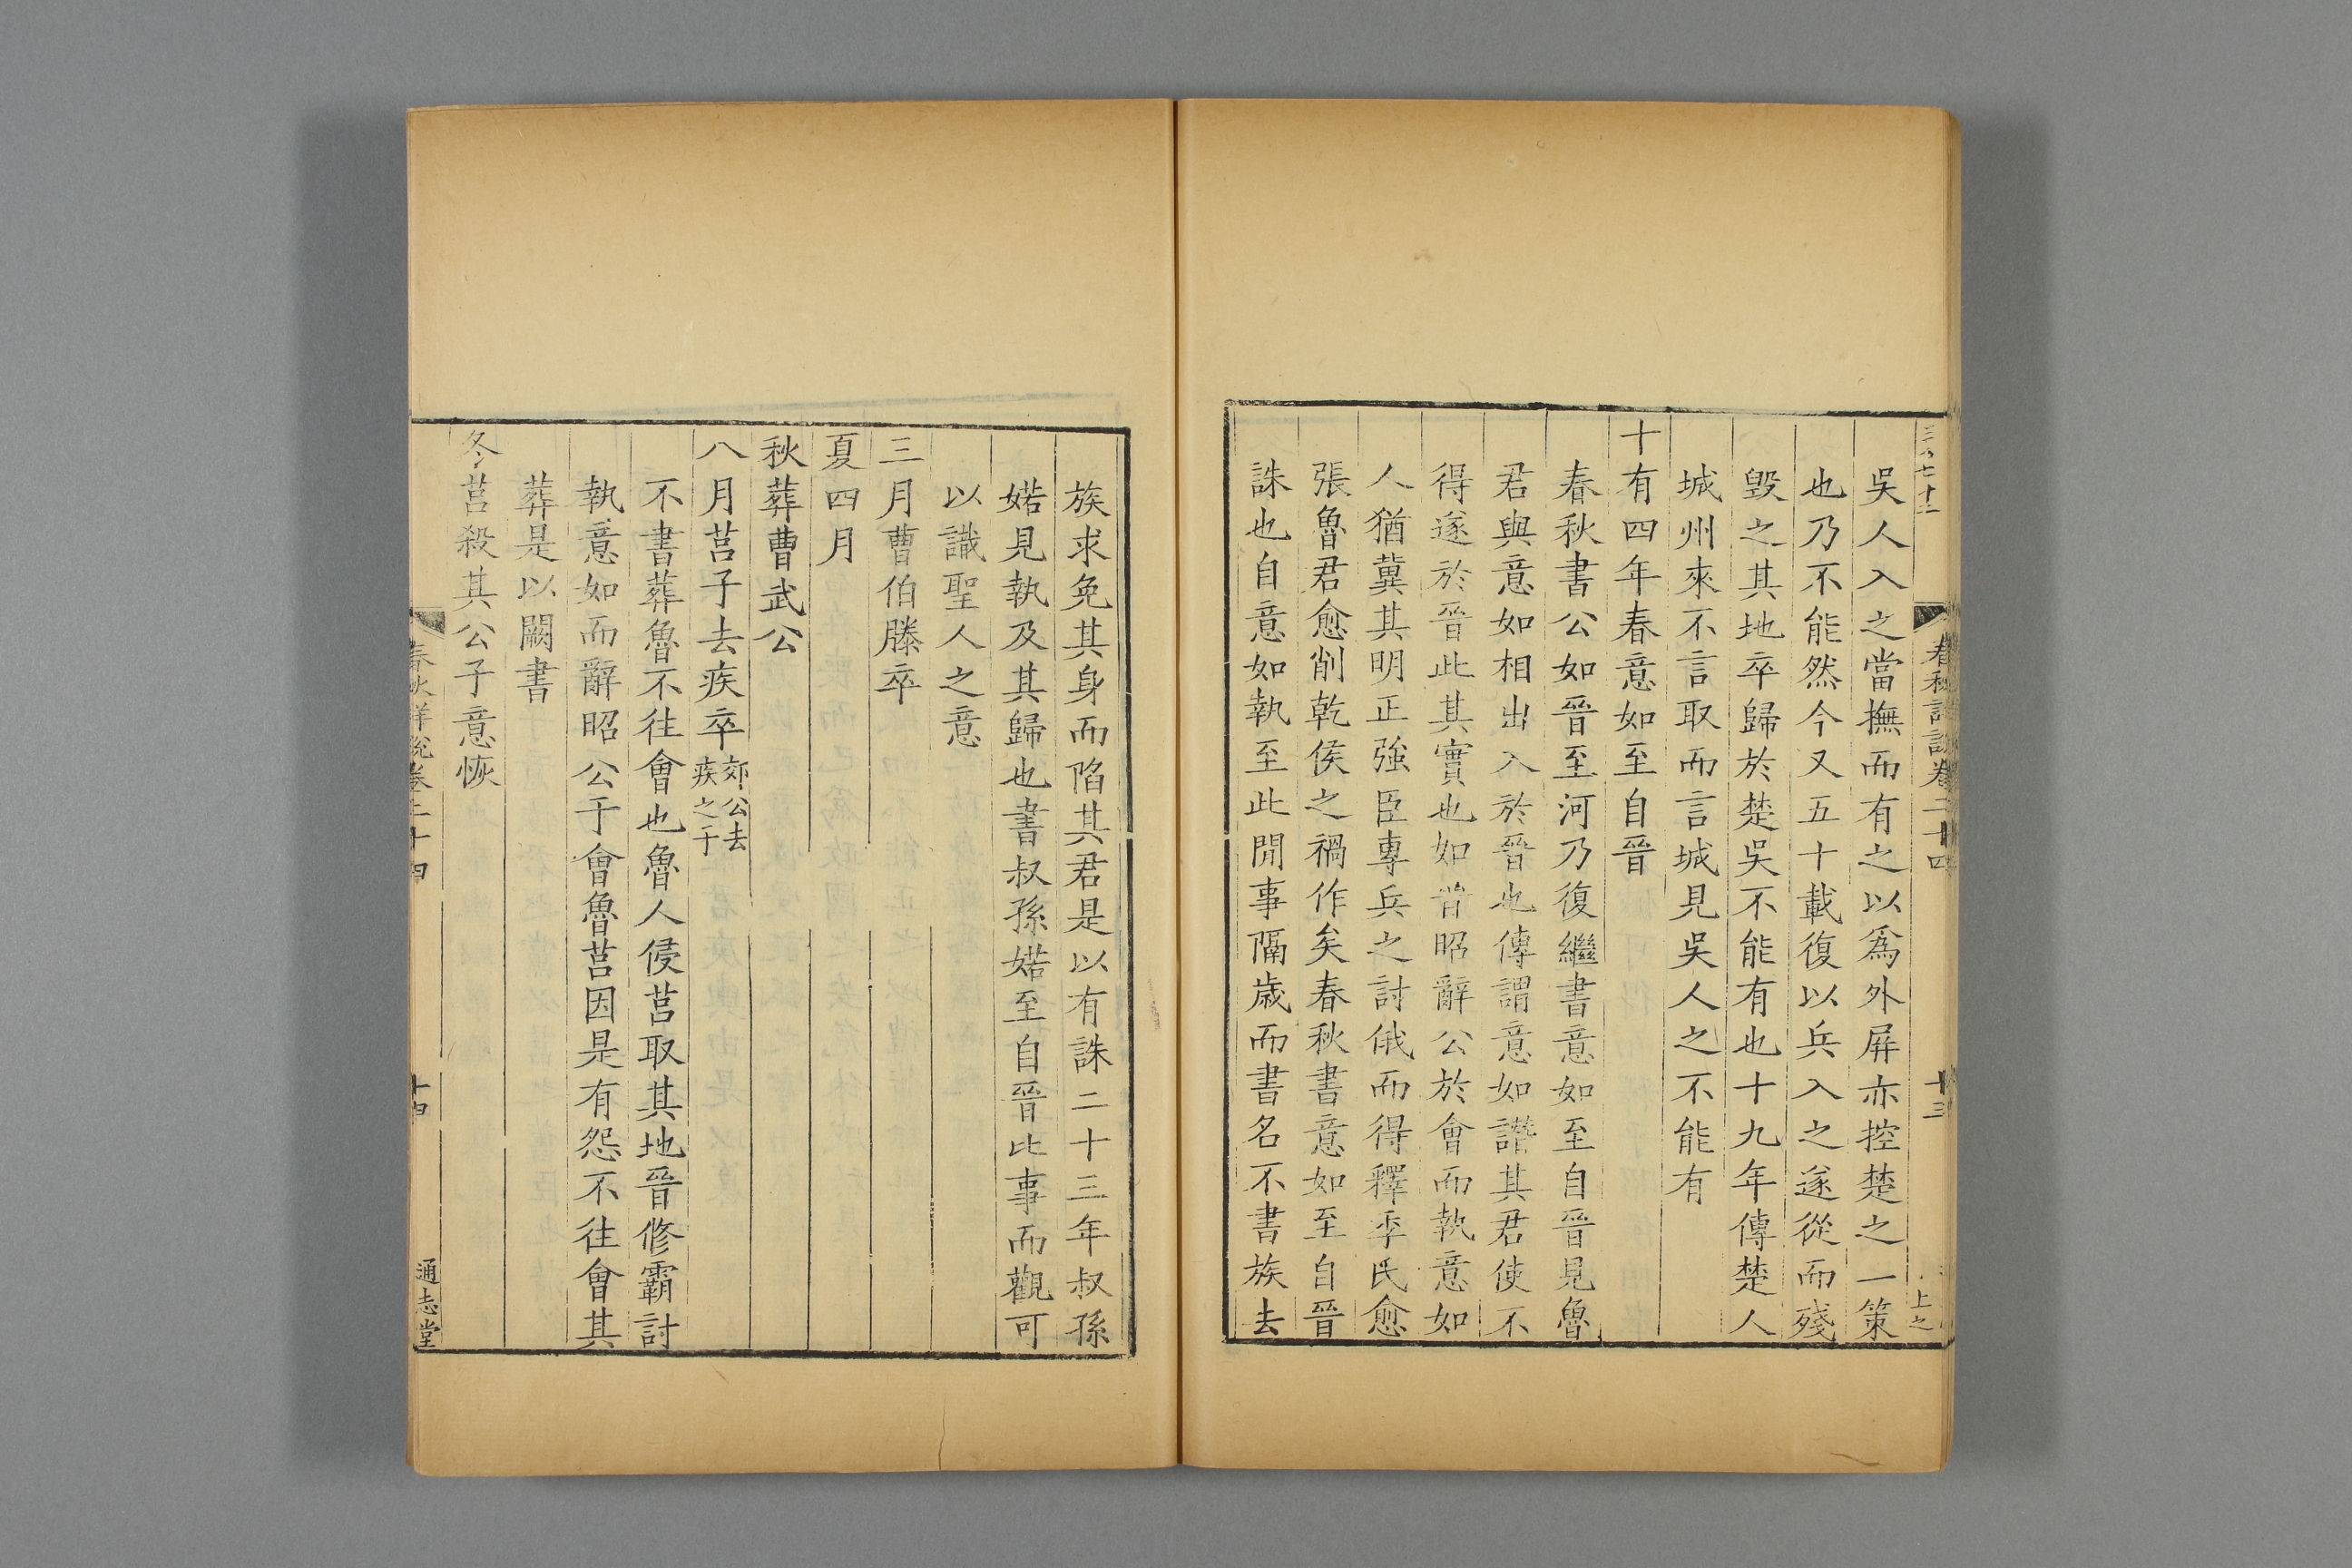 吳人入之當撫而有之以爲外屏亦控楚之一策
也乃不能然今又五十載復以兵入之遂從而殘
毁之其地卒歸於楚吳不能有也十九年傳楚人
城州來不言取而言城見吳人之不能有
十有四年春意如至自晉
春秋書公如晉至河乃復繼書意如至自晉見魯
君與意如相出入於晉也傳謂意如譖其君使不
得遂於晉此其實也如昔昭辭公於會而執意如
人猶冀其明正強臣專兵之討俄而得釋季氏愈
張魯君愈削乾侯之禍作矣春秋書意如至自晉
誅也自意如執至此閒事隔歲而書名不書族去
春秋詳說卷二十四
十三
上之
族求免其身而陷其君是以有誅二十三年叔孫
婼見執及其歸也書叔孫婼至自晉比事而觀可
以識聖人之意
三月曹伯滕卒
夏四月
秋葬曹武公
八月莒子去疾卒郊公去
疾之子
不書葬魯不往會也魯人侵莒取其地晉修霸討
執意如而辭昭公于會魯莒因是有怨不往會其
葬是以闕書
冬莒殺其公子意恢
春秋詳說卷二十四
十四
通志堂